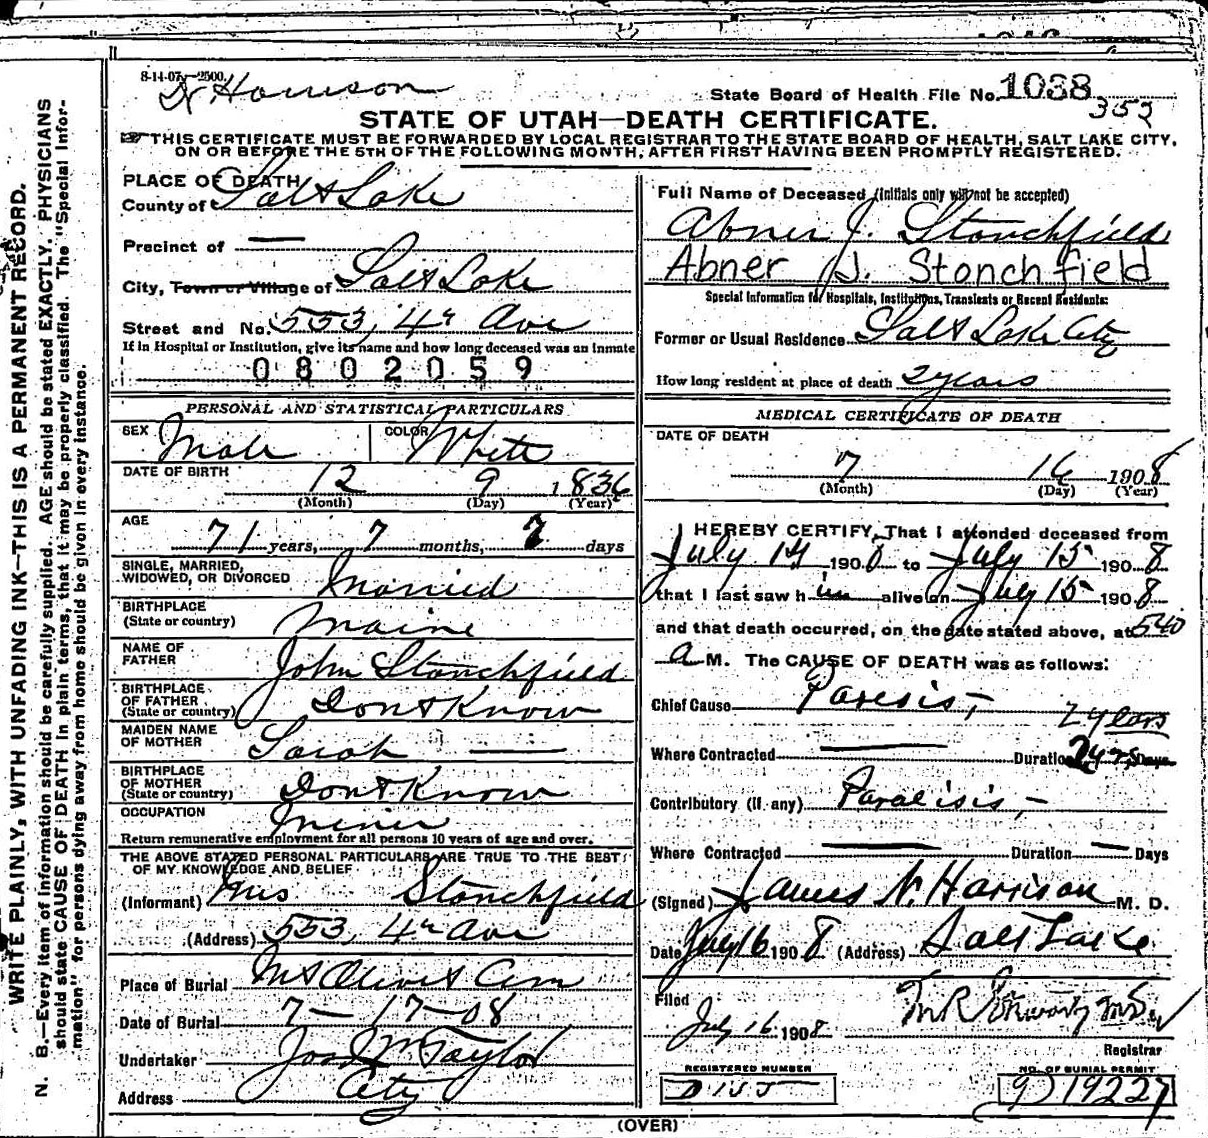 8-14-07—2500.
Dr Harrison
State Board of Health File No. 1038
352
STATE OF UTAH—DEATH CERTIFICATE.
☞ THIS CERTIFICATE MUST BE FORWARDED BY LOCAL REGISTRAR TO THE STATE BOARD OF HEALTH, SALT LAKE CITY,
ON OR BEFORE THE 5TH OF THE FOLLOWING MONTH, AFTER FIRST HAVING BEEN PROMPTLY REGISTERED.
WRITE PLAINLY, WITH UNFADING INK—THIS IS A PERMANENT RECORD.
N. B.—Every item of information should be carefully supplied. AGE should be stated EXACTLY. PHYSICIANS
should state CAUSE OF DEATH in plain terms, that it may be properly classified. The "Special Infor-
mation" for persons dying away from home should be given in every instance.
PLACE OF DEATH
County of Salt Lake
Precinct of —
City, Town or Village of Salt Lake
Street and No. 553, 4th Ave
If in Hospital or Institution, give its name and how long deceased was an inmate
0802059
PERSONAL AND STATISTICAL PARTICULARS
SEX Male COLOR White
DATE OF BIRTH 12 9 1836
(Month) (Day) (Year)
AGE 71 years, 7 months, 7 days
SINGLE, MARRIED,
WIDOWED, OR DIVORCED Married
BIRTHPLACE
(State or country) Maine
NAME OF
FATHER John Stonchfield
BIRTHPLACE
OF FATHER
(State or country) Dont Know
MAIDEN NAME
OF MOTHER Sarah —
BIRTHPLACE
OF MOTHER
(State or country) Dont Know
OCCUPATION Miner
Return remunerative employment for all persons 10 years of age and over.
THE ABOVE STATED PERSONAL PARTICULARS ARE TRUE TO THE BEST
OF MY KNOWLEDGE AND BELIEF
(Informant) Mrs Stonchfield
(Address) 553, 4th Ave
Place of Burial Mt Olivet Cem
Date of Burial 7—17—08
Undertaker Jos Wm Taylor
Address City
Full Name of Deceased (Initials only will not be accepted)
Abner J. Stonchfield
Abner J. Stonchfield
Special Information for Hospitals, Institutions, Transients or Recent Residents:
Former or Usual Residence Salt Lake City
How long resident at place of death 2 years
MEDICAL CERTIFICATE OF DEATH
DATE OF DEATH
7 16 1908
(Month) (Day) (Year)
I HEREBY CERTIFY, That I attended deceased from
July 14 1908 to July 15 1908
that I last saw him alive on July 15 1908
and that death occurred, on the date stated above, at 540
a M. The CAUSE OF DEATH was as follows:
Chief Cause Paresis,—
2 years
Where Contracted — Duration 2 yrs Days
Contributory (if any) Paralisis,—
Where Contracted — Duration — Days
(Signed) James N. Harrison M. D.
Date July 16 1908 (Address) Salt Lake
Filed
July 16 1908
Registrar
REGISTERED NUMBER NO. OF BURIAL PERMIT
D 1155 9) 19227
(OVER)